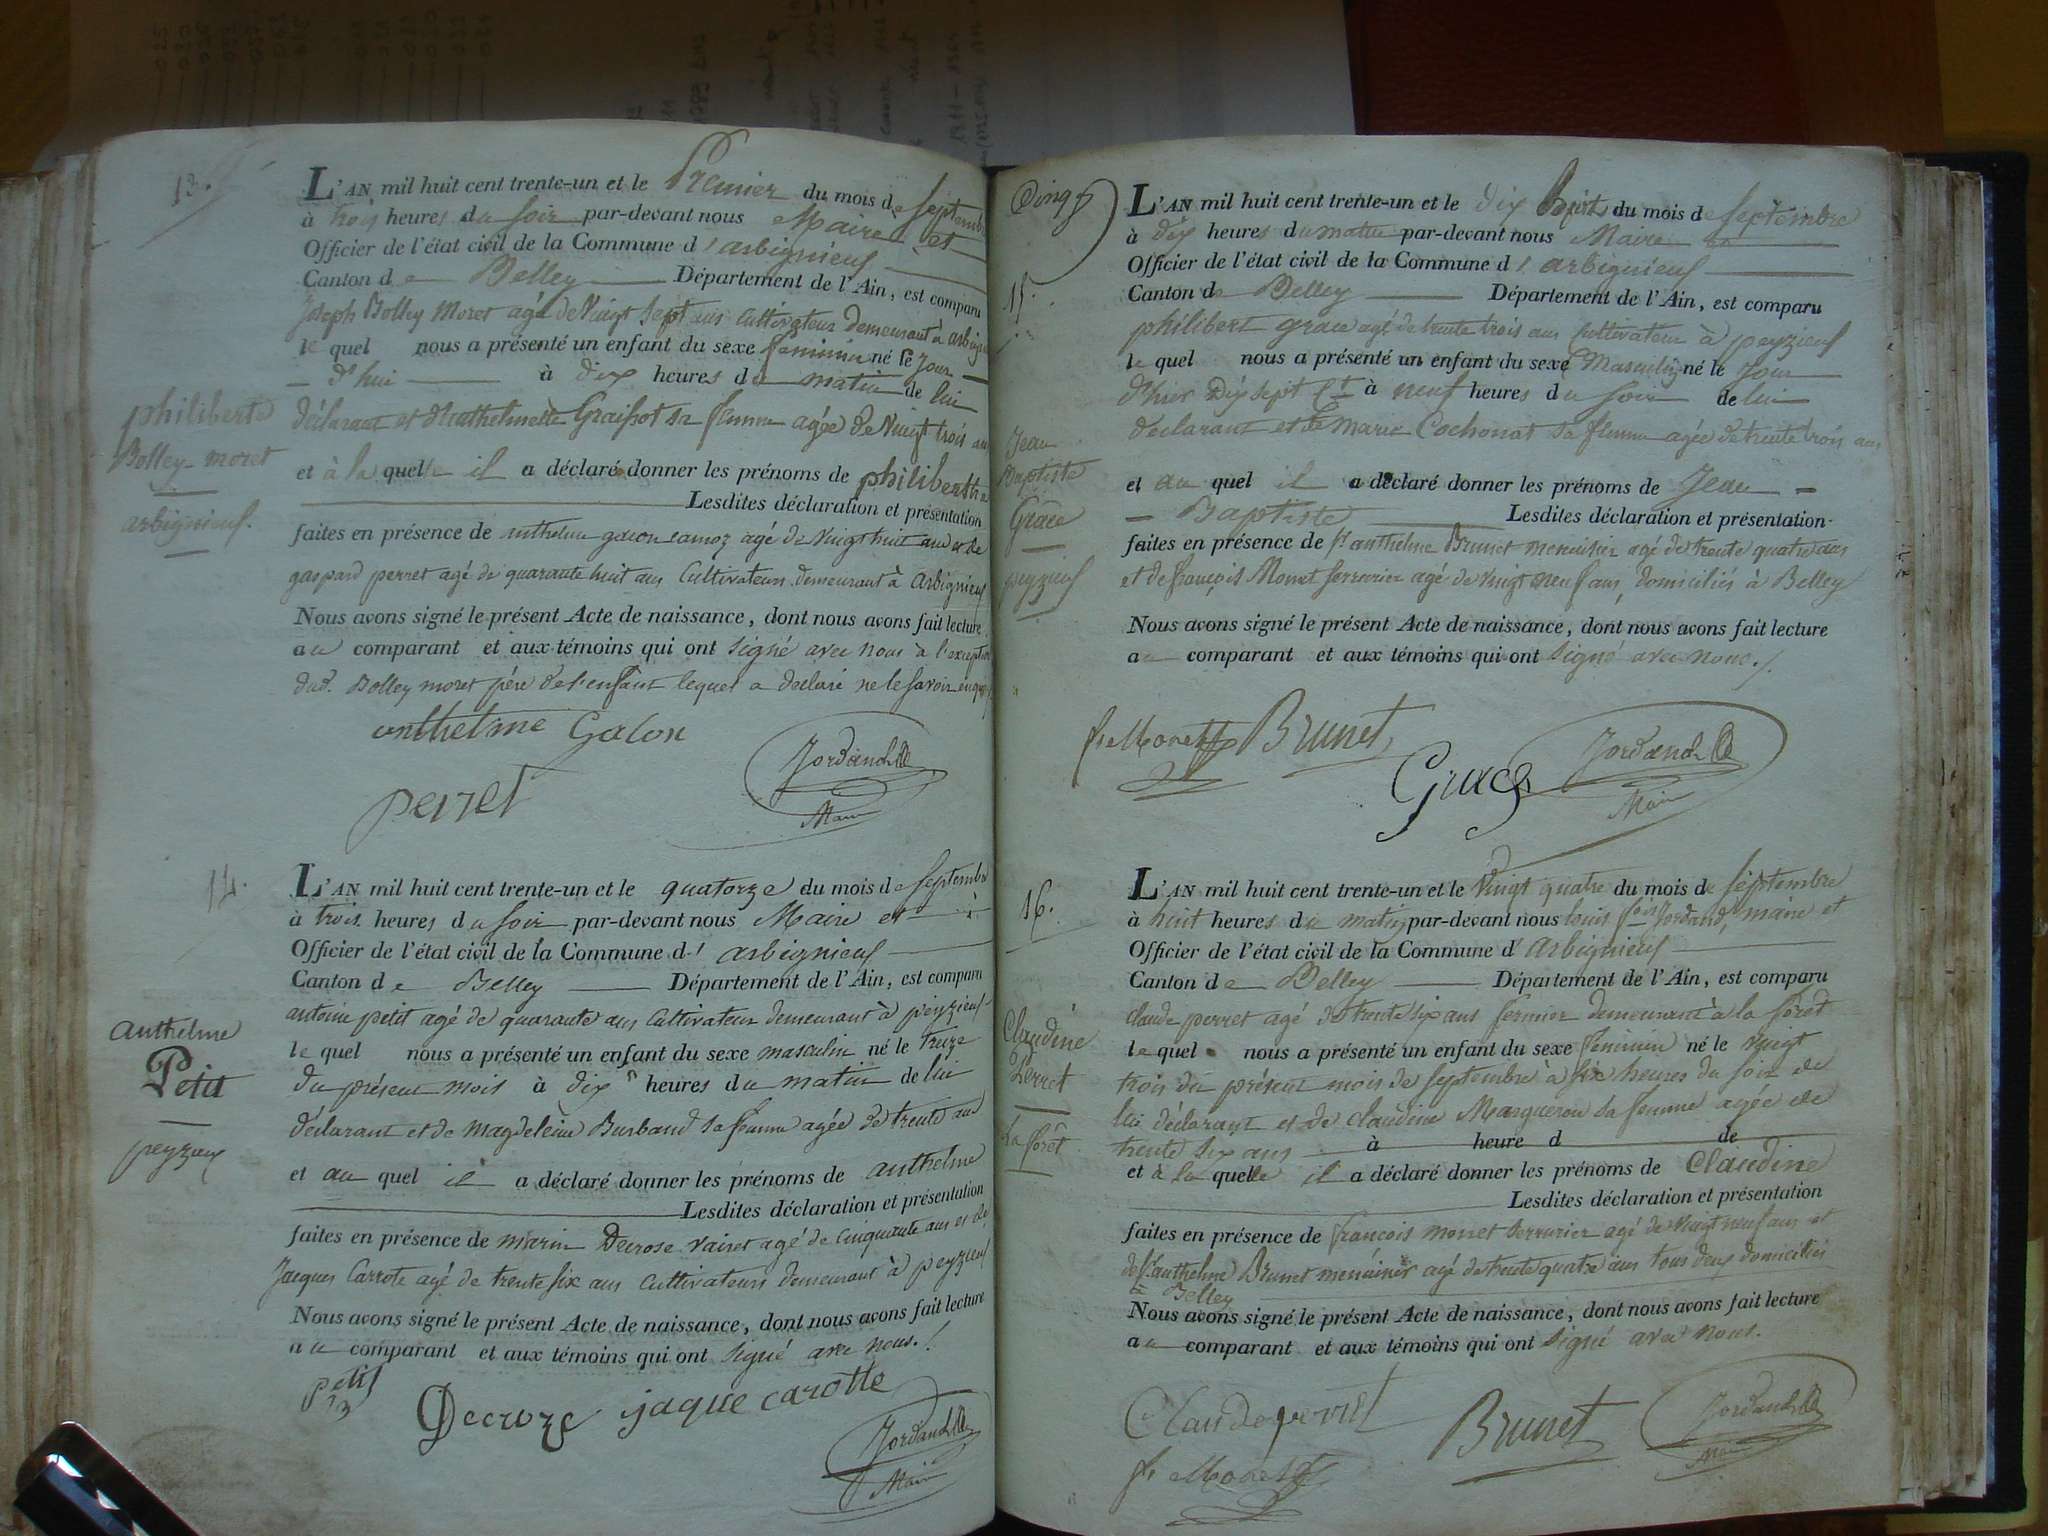 13.
L'AN mil huit cent trente-un et le Premier du mois de septembre
à trois heures du soir par-devant nous Maire et
Officier de l'état civil de la Commune d'arbignieuf
Canton de Belley Département de l'Ain, est comparu
Joseph Bolley Moret agé de vingt sept ans cultivateur demeurant à arbignieuf
le quel nous a présenté un enfant du sexe feminin né le jour
d'hui à dix heures du matin de lui
déclarant et d'anthelmette Graissot sa femme agée de vingt trois ans
et à la quelle il a déclaré donner les prénoms de philiberthe
Lesdites déclaration et présentation
faites en présence de anthelme galon camoz agé de vingt huit ans et de
gaspard perret agé de quarante huit ans cultivateurs demeurant à arbignieuf
Nous avons signé le présent Acte de naissance, dont nous avons fait lecture
au comparant et aux témoins qui ont signé avec nous à l'exception
dud. Bolley moret père de l'enfant lequel a déclaré ne le savoir enquis
anthelme Galon
perret
Jordand
Maire
philiberte
Bolley-moret
arbignieuf.
14.
L'AN mil huit cent trente-un et le quatorze du mois de septembre
à trois heures du soir par-devant nous Maire et
Officier de l'état civil de la Commune d'arbignieuf
Canton de Belley Département de l'Ain, est comparu
antoine petit agé de quarante ans cultivateur demeurant à peyzieuf
le quel nous a présenté un enfant du sexe masculin né le treize
du présent mois à dix heures du matin de lui
déclarant et de magdeleine Burbaud sa femme agée de trente ans
et au quel il a déclaré donner les prénoms de anthelme
Lesdites déclaration et présentation
faites en présence de marin Decrose vairet agé de cinquante ans et de
Jacques Carrote agé de trente six ans cultivateurs demeurant à peyzieuf
Nous avons signé le présent Acte de naissance, dont nous avons fait lecture
au comparant et aux témoins qui ont signé avec nous./.
petit
Decroze jaque carotte
Jordand
Maire
anthelme
Petit
peyzieux
Cinq
15.
L'AN mil huit cent trente-un et le dix huit du mois de septembre
à dix heures du matin par-devant nous Maire
Officier de l'état civil de la Commune d'arbignieuf
Canton de Belley Département de l'Ain, est comparu
philibert grace agé de trente trois ans cultivateur à peyzieuf
le quel nous a présenté un enfant du sexe Masculin né le jour
d'hier dix sept ct à neuf heures du soir de lui
déclarant et de marie Cochonat sa femme agée de trente trois ans
et au quel il a déclaré donner les prénoms de Jean
Baptiste Lesdites déclaration et présentation
faites en présence de sr anthelme Brunet menuisier agé de trente quatre ans
et de françois Monet serrurier agé de vingt neuf ans, domiciliés à Belley
Nous avons signé le présent Acte de naissance, dont nous avons fait lecture
au comparant et aux témoins qui ont signé avec nous./.
fs Monet Brunet
Grace
Jordand
Maire
Jean
Baptiste
Grace
peyzieuf
16.
L'AN mil huit cent trente-un et le vingt quatre du mois de septembre
à huit heures du matin par-devant nous louis fois Jordand, maire et
Officier de l'état civil de la Commune d'arbignieuf
Canton de Belley Département de l'Ain, est comparu
claude perret agé de trente six ans fermier demeurant à la forêt
le quel nous a présenté un enfant du sexe feminin né le vingt
trois du présent mois de septembre à six heures du soir de
lui déclarant et de claudine Margueron sa femme agée de
trente six ans à heure d de
et à la quelle il a déclaré donner les prénoms de Claudine
Lesdites déclaration et présentation
faites en présence de francois monet serrurier agé de vingt neuf ans et
de sr anthelme Brunet menuisier agé de trente quatre ans tous deux domiciliés
à Belley
Nous avons signé le présent Acte de naissance, dont nous avons fait lecture
au comparant et aux témoins qui ont signé avec nous.
Claude perret
fs Monet
Brunet
Jordand
Maire
Claudine
Perret
La forêt